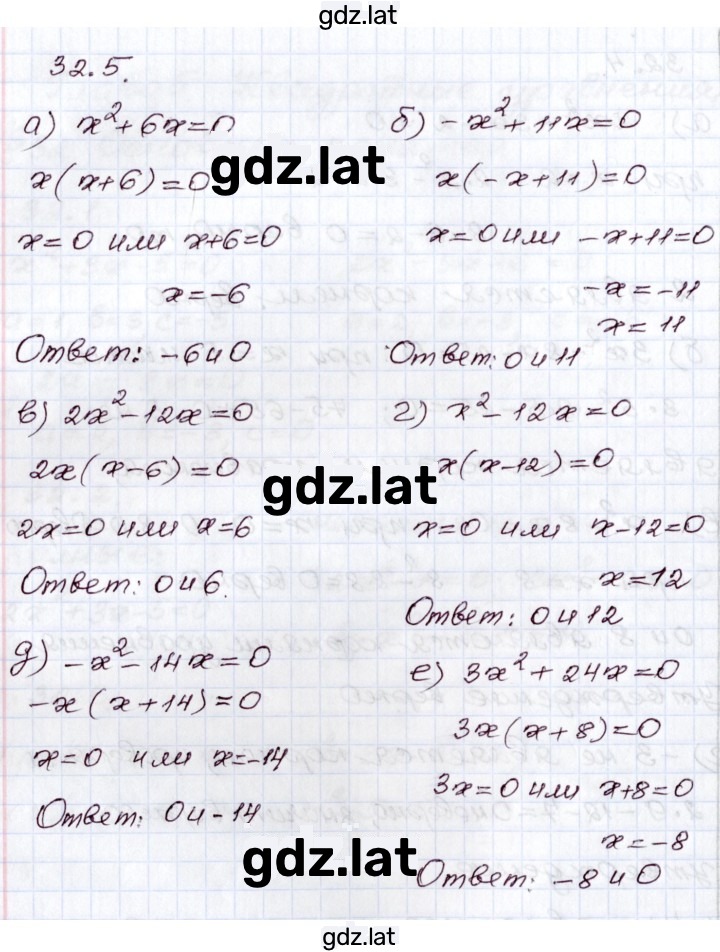 gdz.lat
32.5.
а) x²+6x=0
x(x+6)=0
x=0 или x+6=0
x=-6
Ответ: -6 и 0
б) -x²+11x=0
x(-x+11)=0
x=0 или -x+11=0
-x=-11
x=11
Ответ: 0 и 11
gdz.lat
в) 2x²-12x=0
2x(x-6)=0
2x=0 или x=6
Ответ: 0 и 6.
г) x²-12x=0
x(x-12)=0
x=0 или x-12=0
x=12
Ответ: 0 и 12
gdz.lat
д) -x²-14x=0
-x(x+14)=0
x=0 или x=-14
Ответ: 0 и -14
е) 3x²+24x=0
3x(x+8)=0
3x=0 или x+8=0
x=-8
Ответ: -8 и 0
gdz.lat
gdz.lat